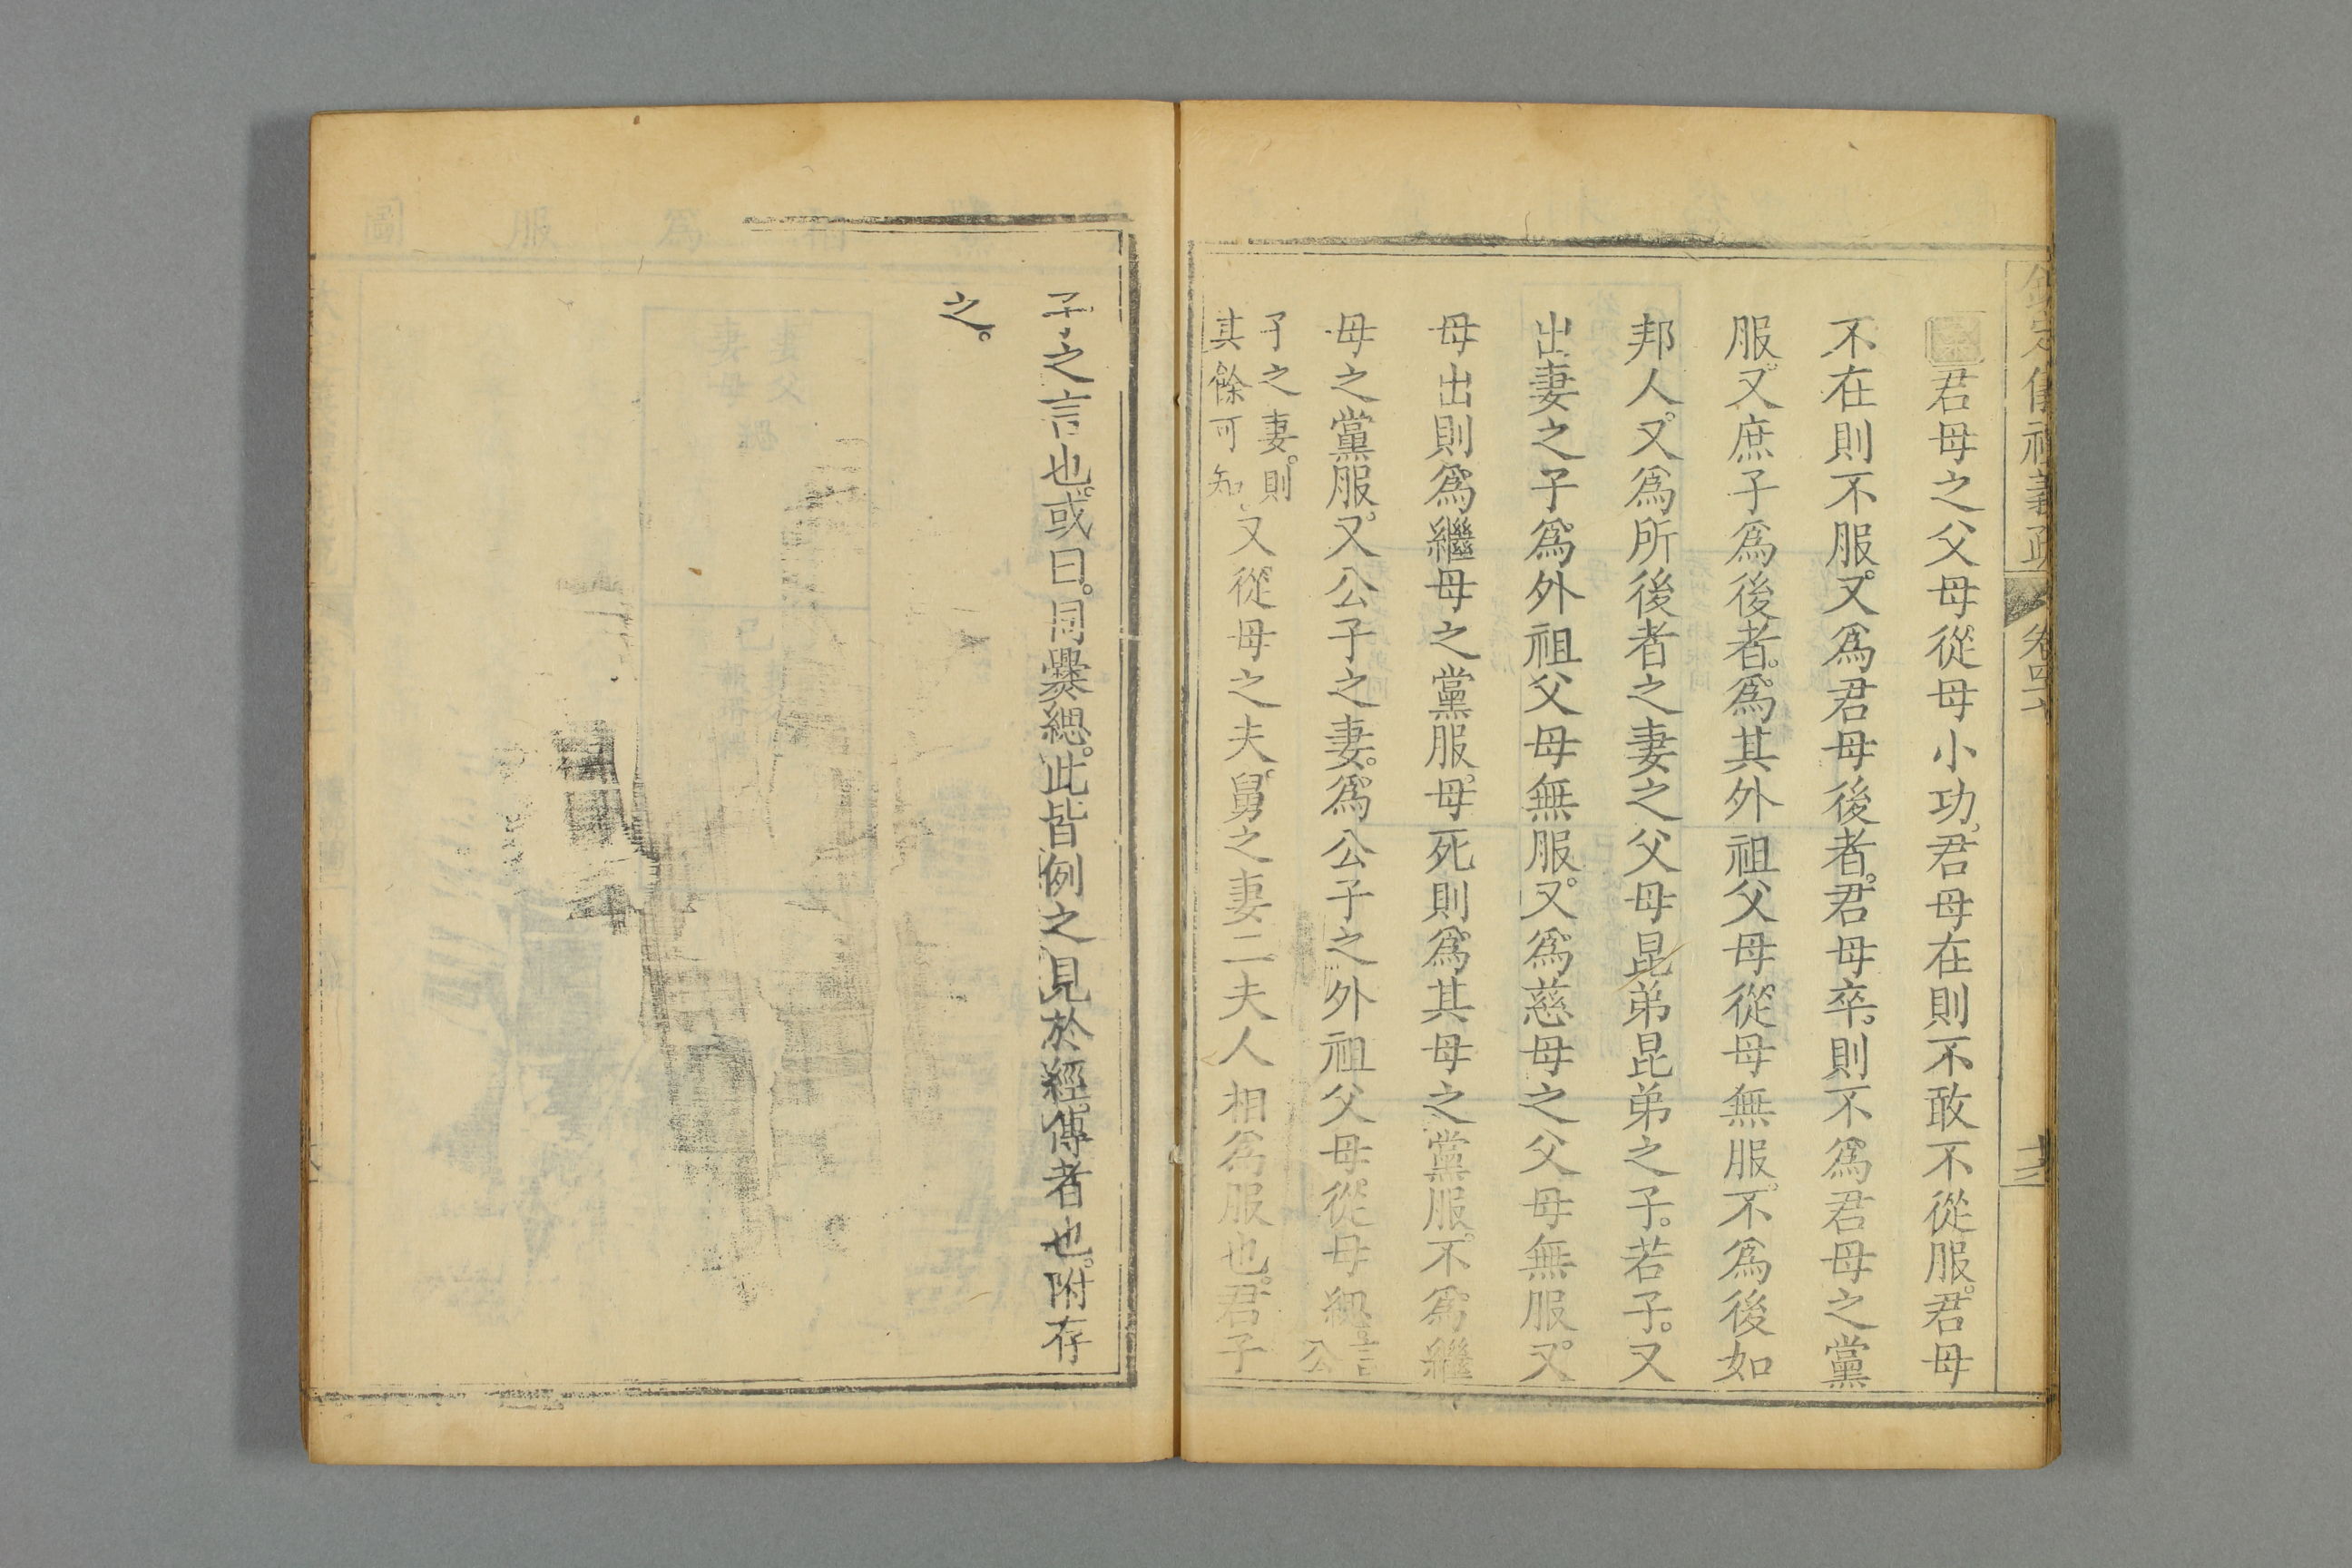 欽定儀禮義疏 卷四十
君母之父母從母小功。君母在則不敢不從服。君母
不在則不服。又爲君母後者。君母卒。則不爲君母之黨
服。又庶子爲後者。爲其外祖父母從母無服。不爲後如
邦人。又爲所後者之妻之父母昆弟昆弟之子。若子。又
出妻之子爲外祖父母無服。又爲慈母之父母無服。又
母出則爲繼母之黨服。母死則爲其母之黨服。不爲繼
母之黨服。又公子之妻。爲公子之外祖父母從母緦。言公
子之妻。則
其餘可知。
又從母之夫。舅之妻二夫人相爲服也。君子
子之言也。或曰。同爨緦。此皆例之見於經傳者也。附存
之。